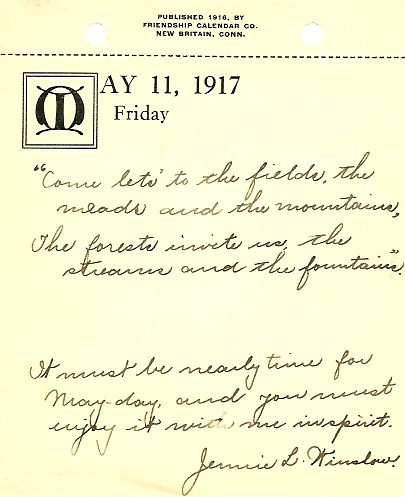 PUBLISHED 1916, BY
FRIENDSHIP CALENDAR CO.
NEW BRITAIN, CONN.
MAY 11, 1917
Friday
"Come lets' to the fields, the
meads and the mountains,
The forests invite us, the
streams and the fountains".
It must be nearly time for
May-day, and you must
enjoy it with me in spirit.
Jennie L. Winslow.